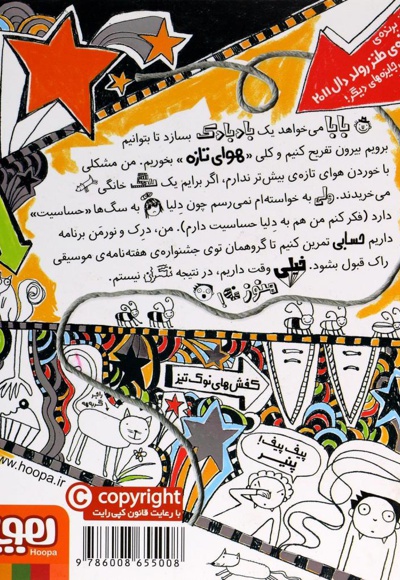 برنده‌ی
ی طنز رولد دال ۲۰۱۱
جایزه‌های دیگر!
بابا می‌خواهد یک بادبادک بسازد تا بتوانیم
برویم بیرون تفریح کنیم و کلی «هوای تازه» بخوریم. من مشکلی
با خوردن هوای تازه‌ی بیش‌تر ندارم، اگر برایم یک سگ خانگی
می‌خریدند. ولی به خواسته‌ام نمی‌رسم چون دِلیا به سگ‌ها «حساسیت»
دارد (فکر کنم من هم به دِلیا حساسیت دارم). من، دِرِک و نورمَن برنامه
داریم حسابی تمرین کنیم تا گروهمان توی جشنواره‌ی هفته‌نامه‌ی موسیقی
راک قبول بشود. خیلی وقت داریم، در نتیجه نگران نیستم.
هنوز نه!
کفش‌های نوک تیز
پیف پیف!
پنیر
www.hoopa.ir
© copyright
با رعایت قانون کپی‌رایت
هوپا
Hoopa
9 786008 655008